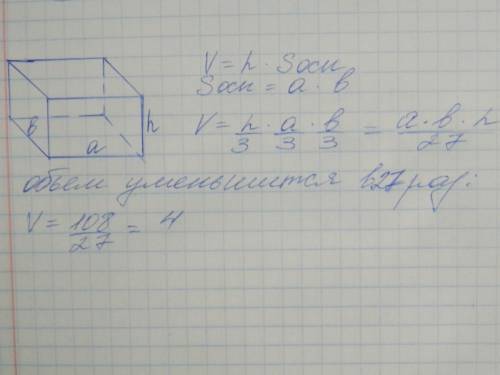 V = h · Sосн
Sосн = a · в
V = h/3 · a/3 · в/3 = a · в · h/27
в
a
h
объем уменьшится в 27 раз:
V = 108/27 = 4